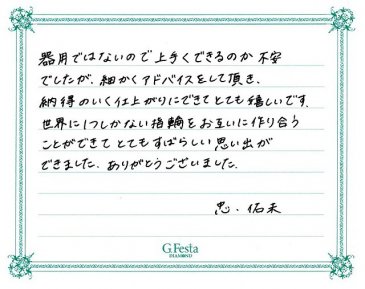 器用ではないので上手くできるのか不安
でしたが、細かくアドバイスをして頂き、
納得のいく仕上がりにできてとても嬉しいです。
世界に1つしかない指輪をお互いに作り合う
ことができてとてもすばらしい思い出が
できました。ありがとうございました。
忠・佑未
G.Festa
DIAMOND